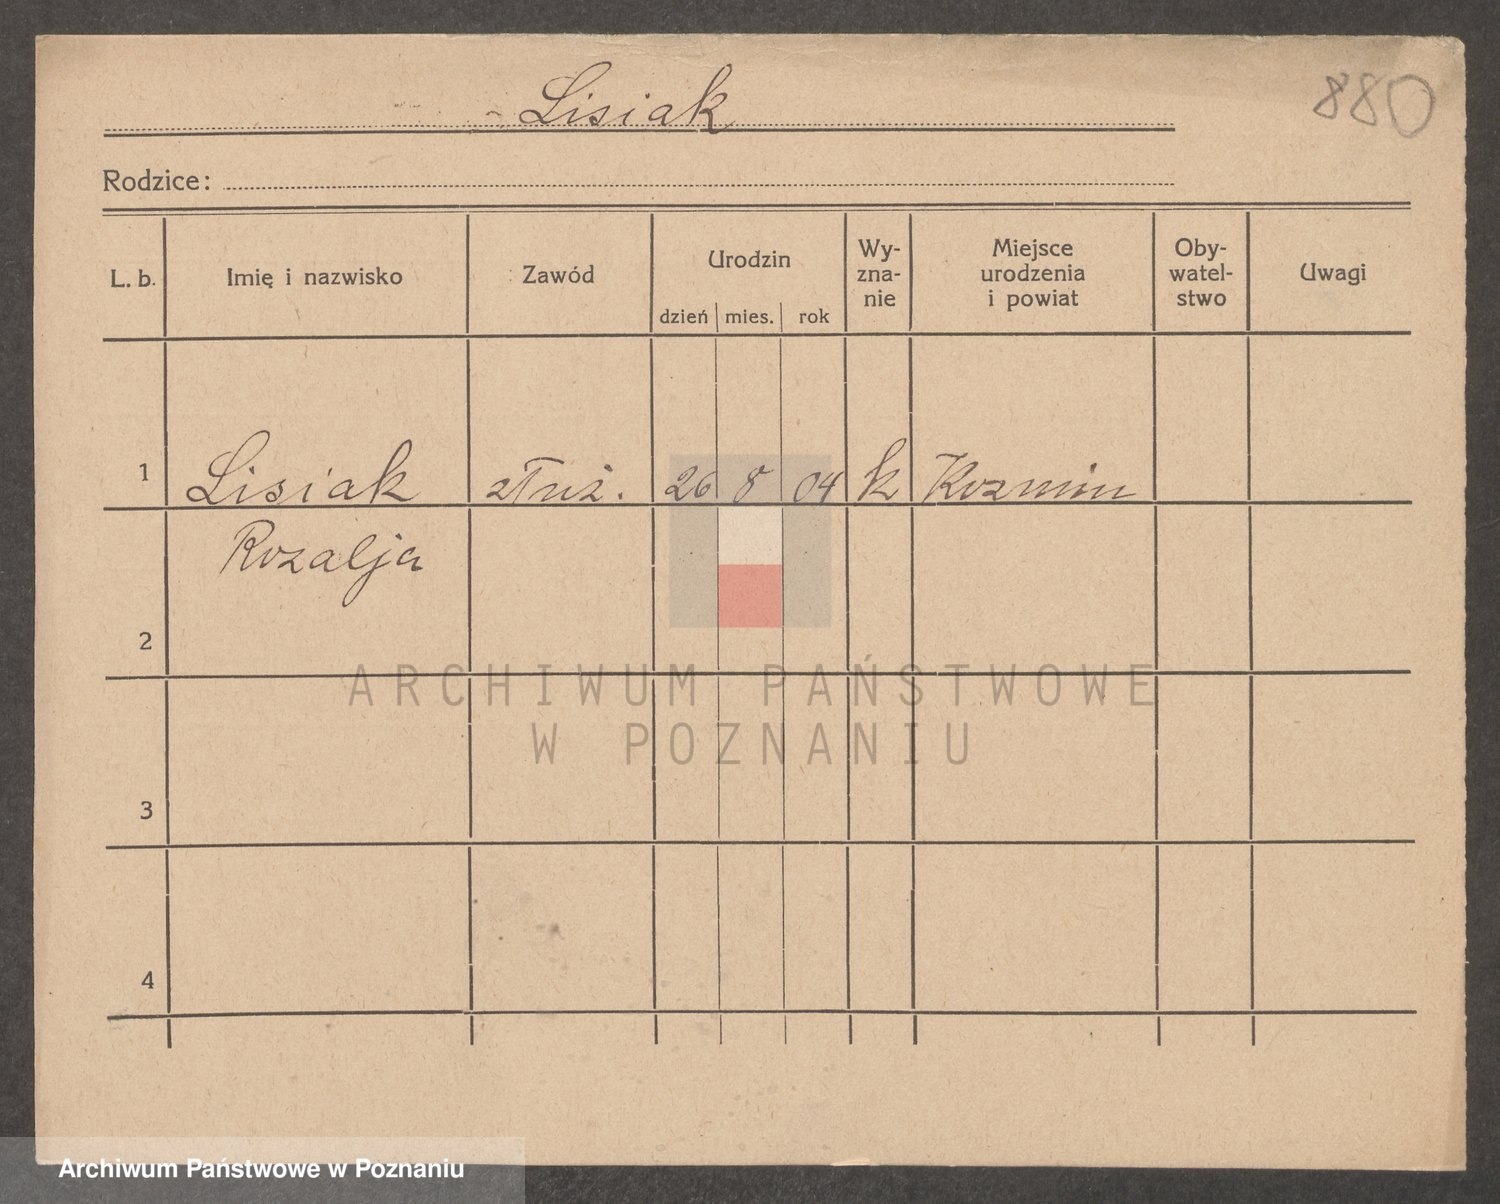 Lisiak
880
Rodzice:
L. b. Imię i nazwisko Zawód Urodzin dzień mies. rok Wy-zna-nie Miejsce urodzenia i powiat Oby-watel-stwo Uwagi
1 Lisiak służ. 26 8 04 k Kozmin
Rozalja
2
ARCHIWUM PAŃSTWOWE
W POZNANIU
3
4
Archiwum Państwowe w Poznaniu